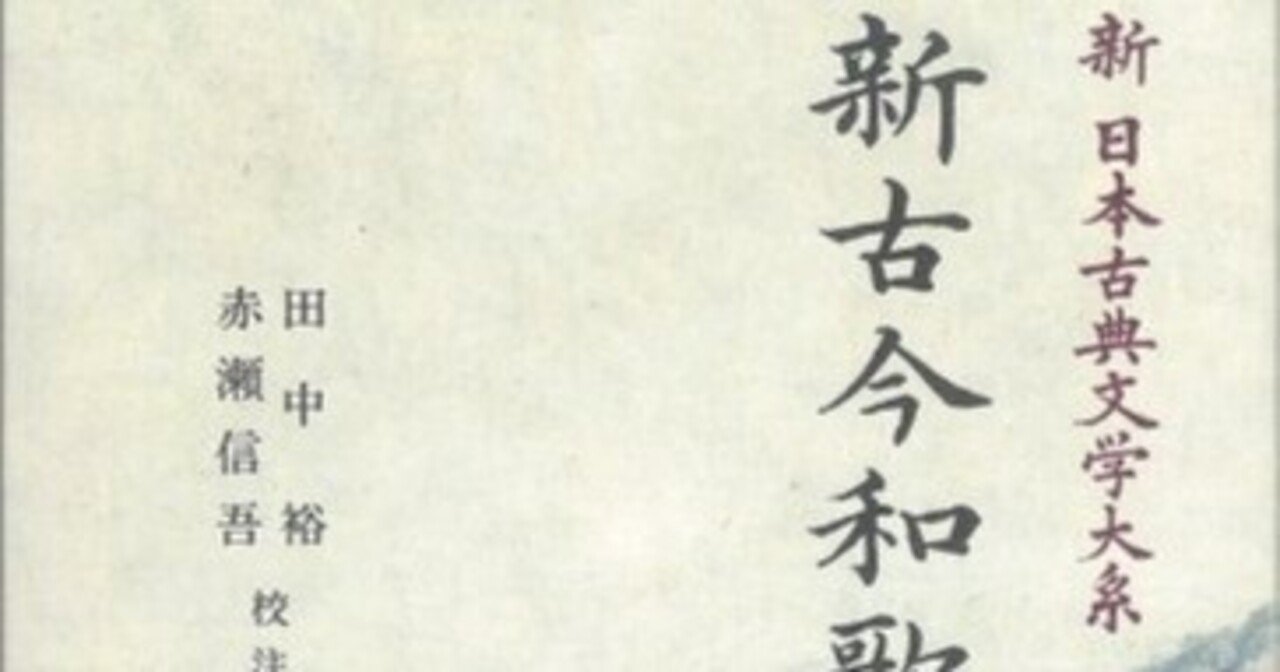 新 日本古典文学大系
新古今和歌
田中 裕
赤瀬信吾
校注